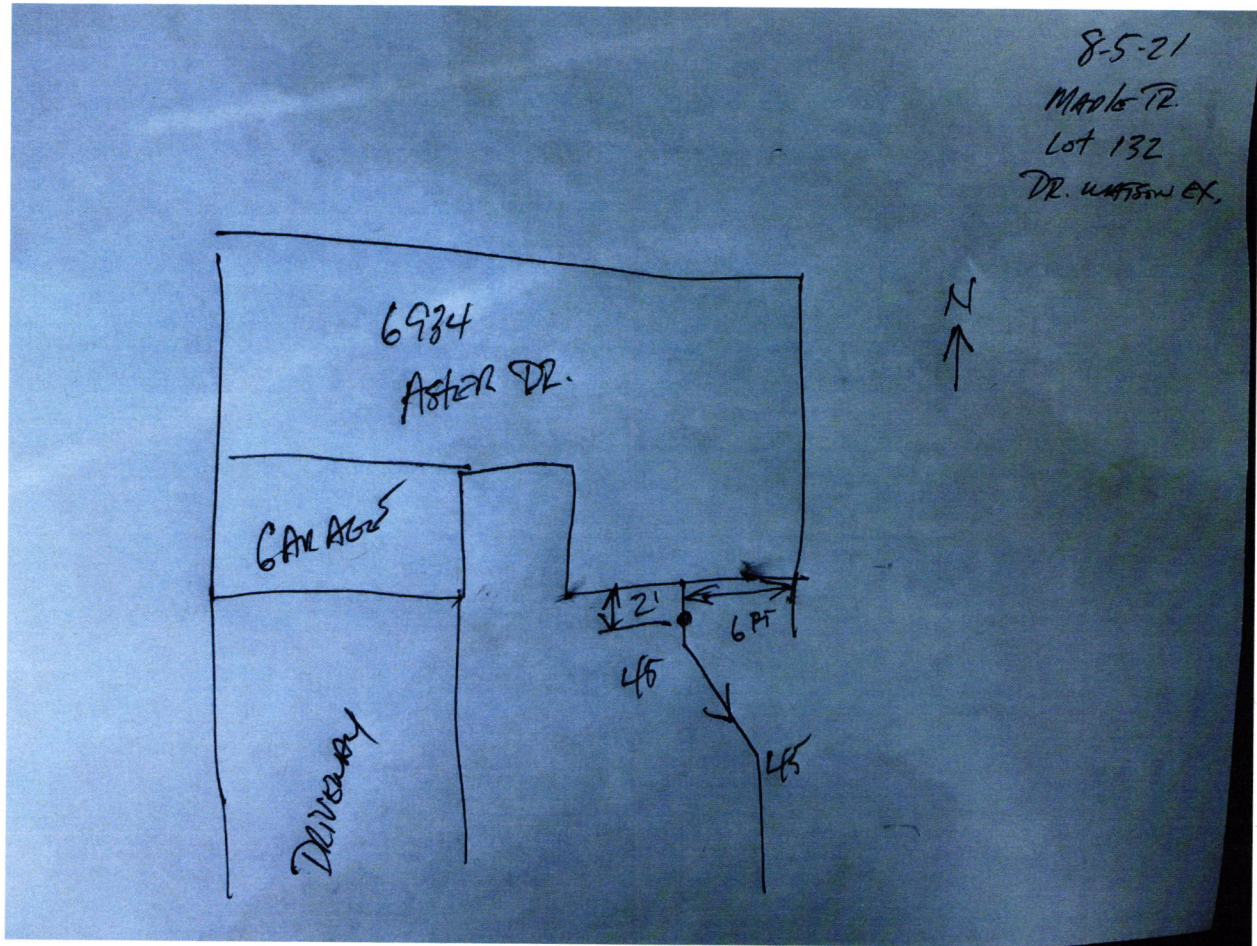 8-5-21
MAPLE TR.
Lot 132
DR. WATSON EX.
N
6934
ASTER DR.
GARAGE
2'
6 FT
45
45
DRIVEWAY